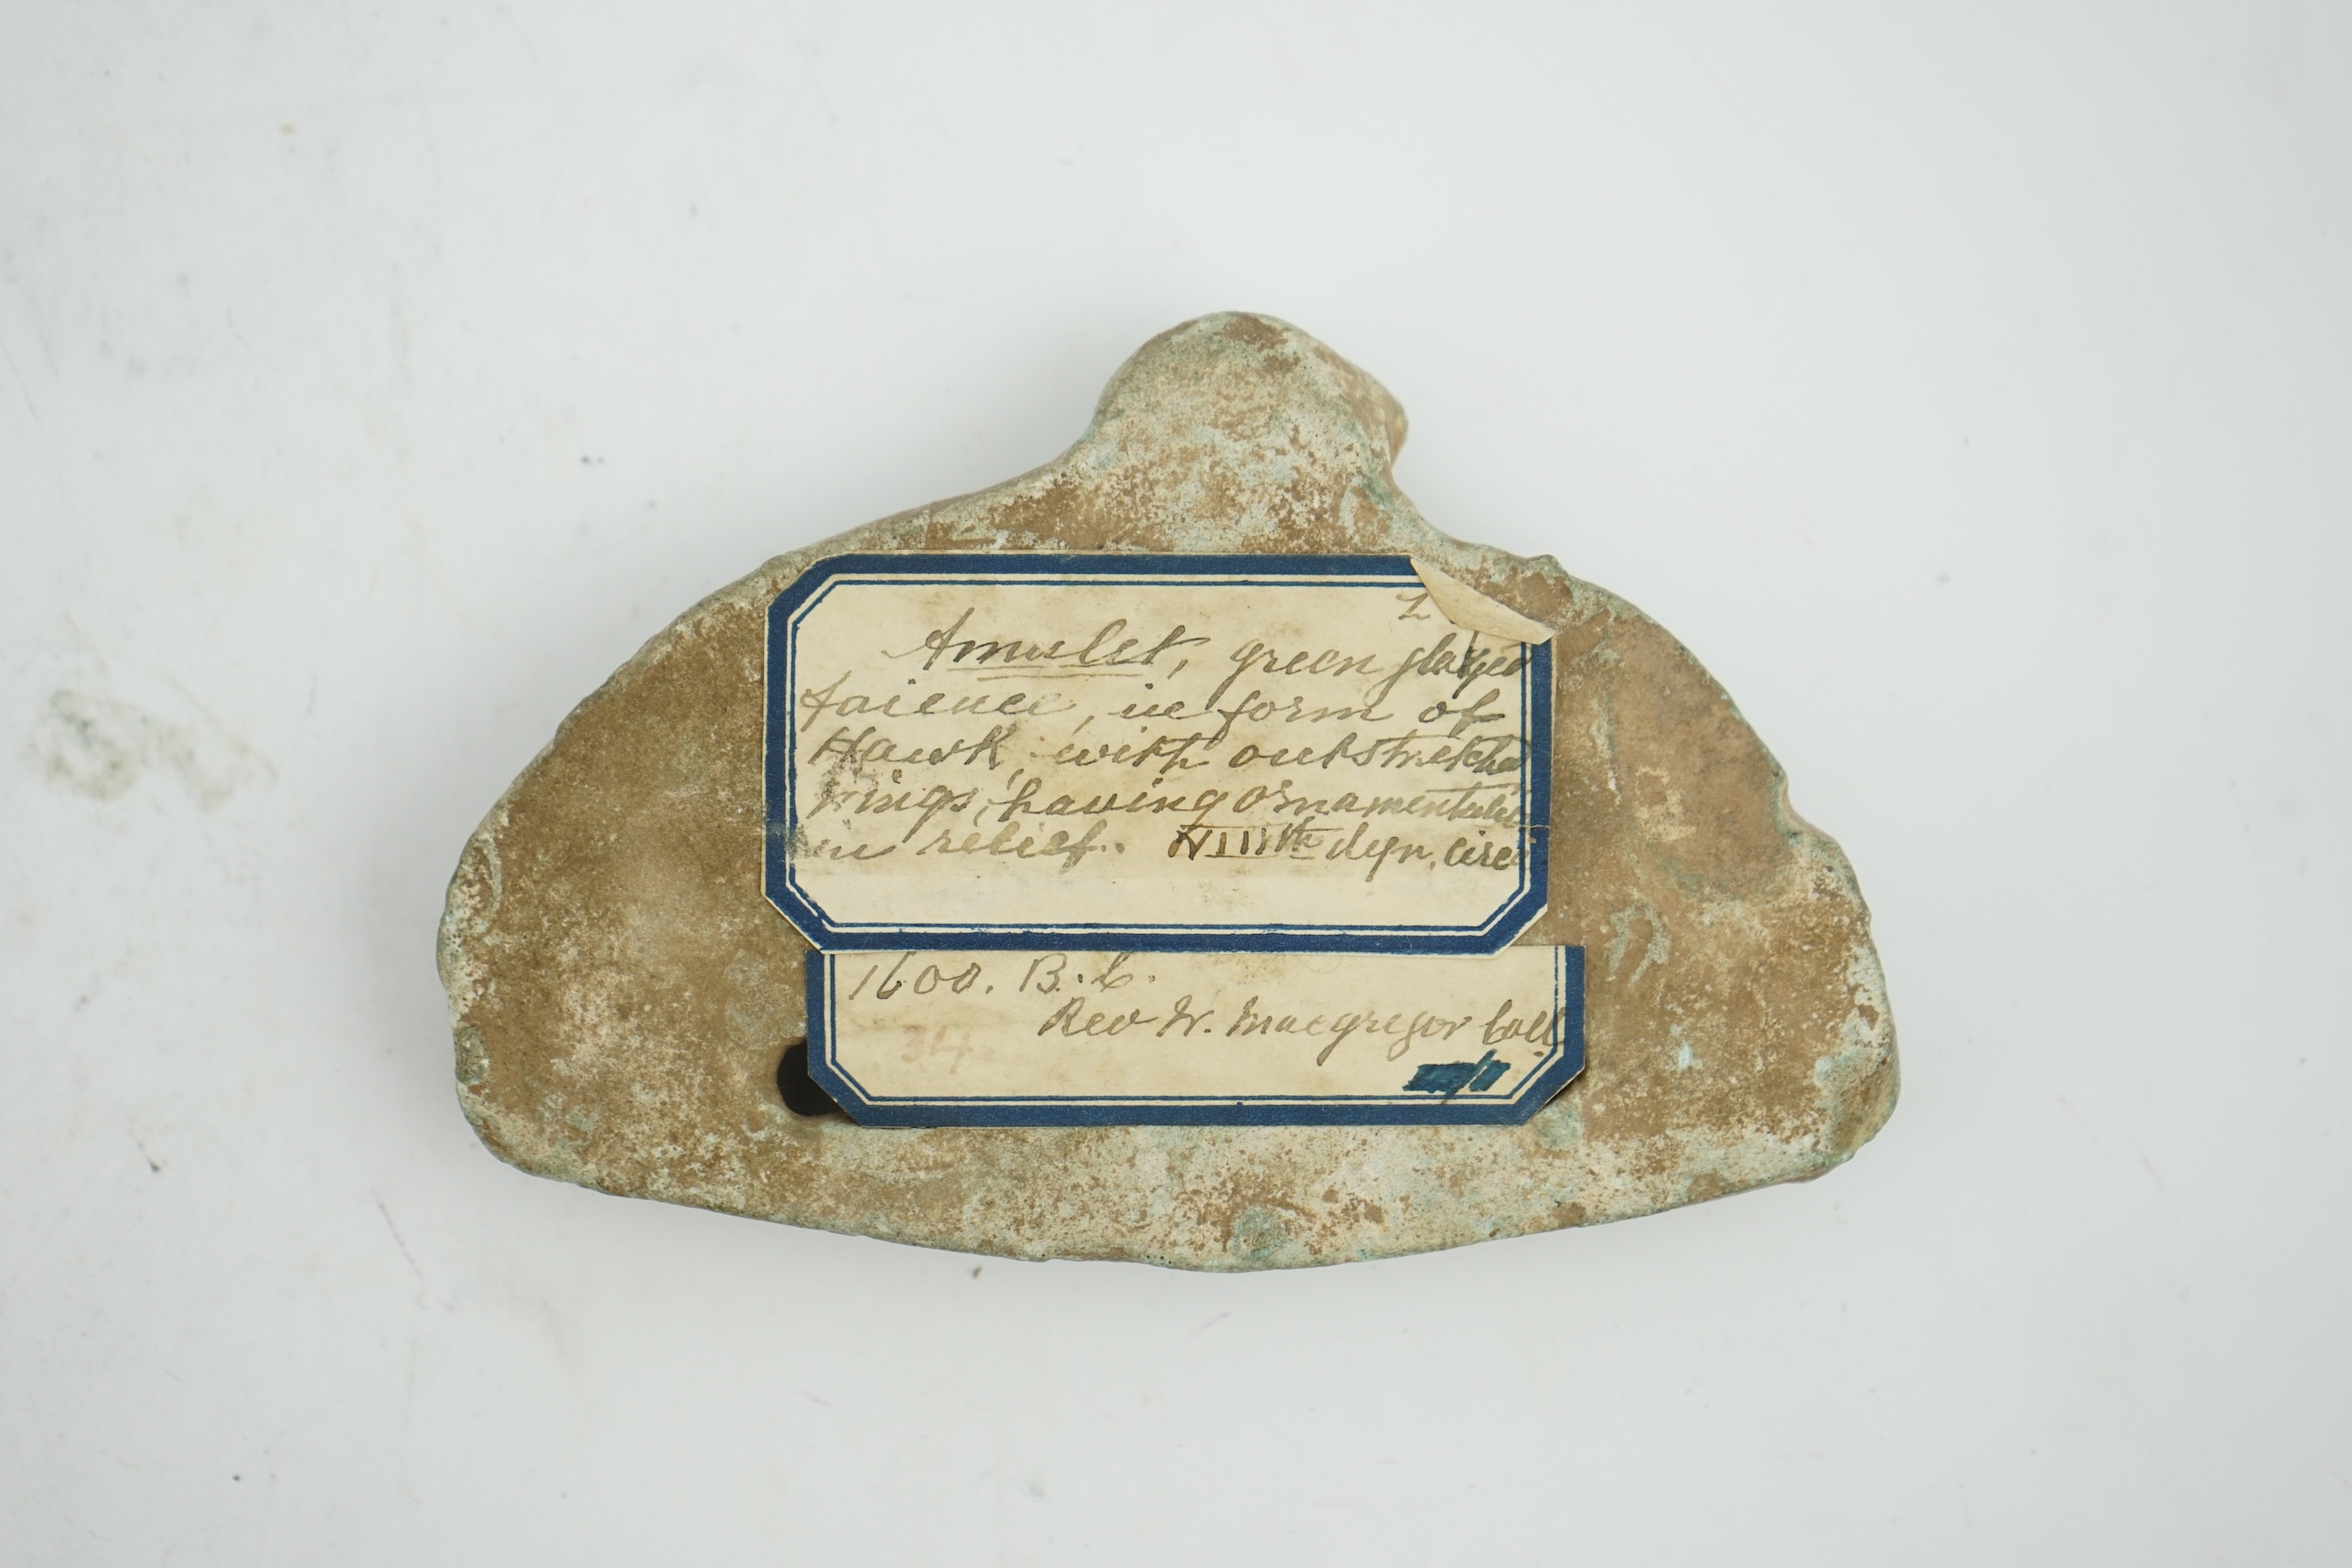 Amulet, green glazed
faience, in form of
Hawk, with outstretched
wings, having
in relief. dyn, circa
1600. B.C.
Rev W. Macgregor Coll
34